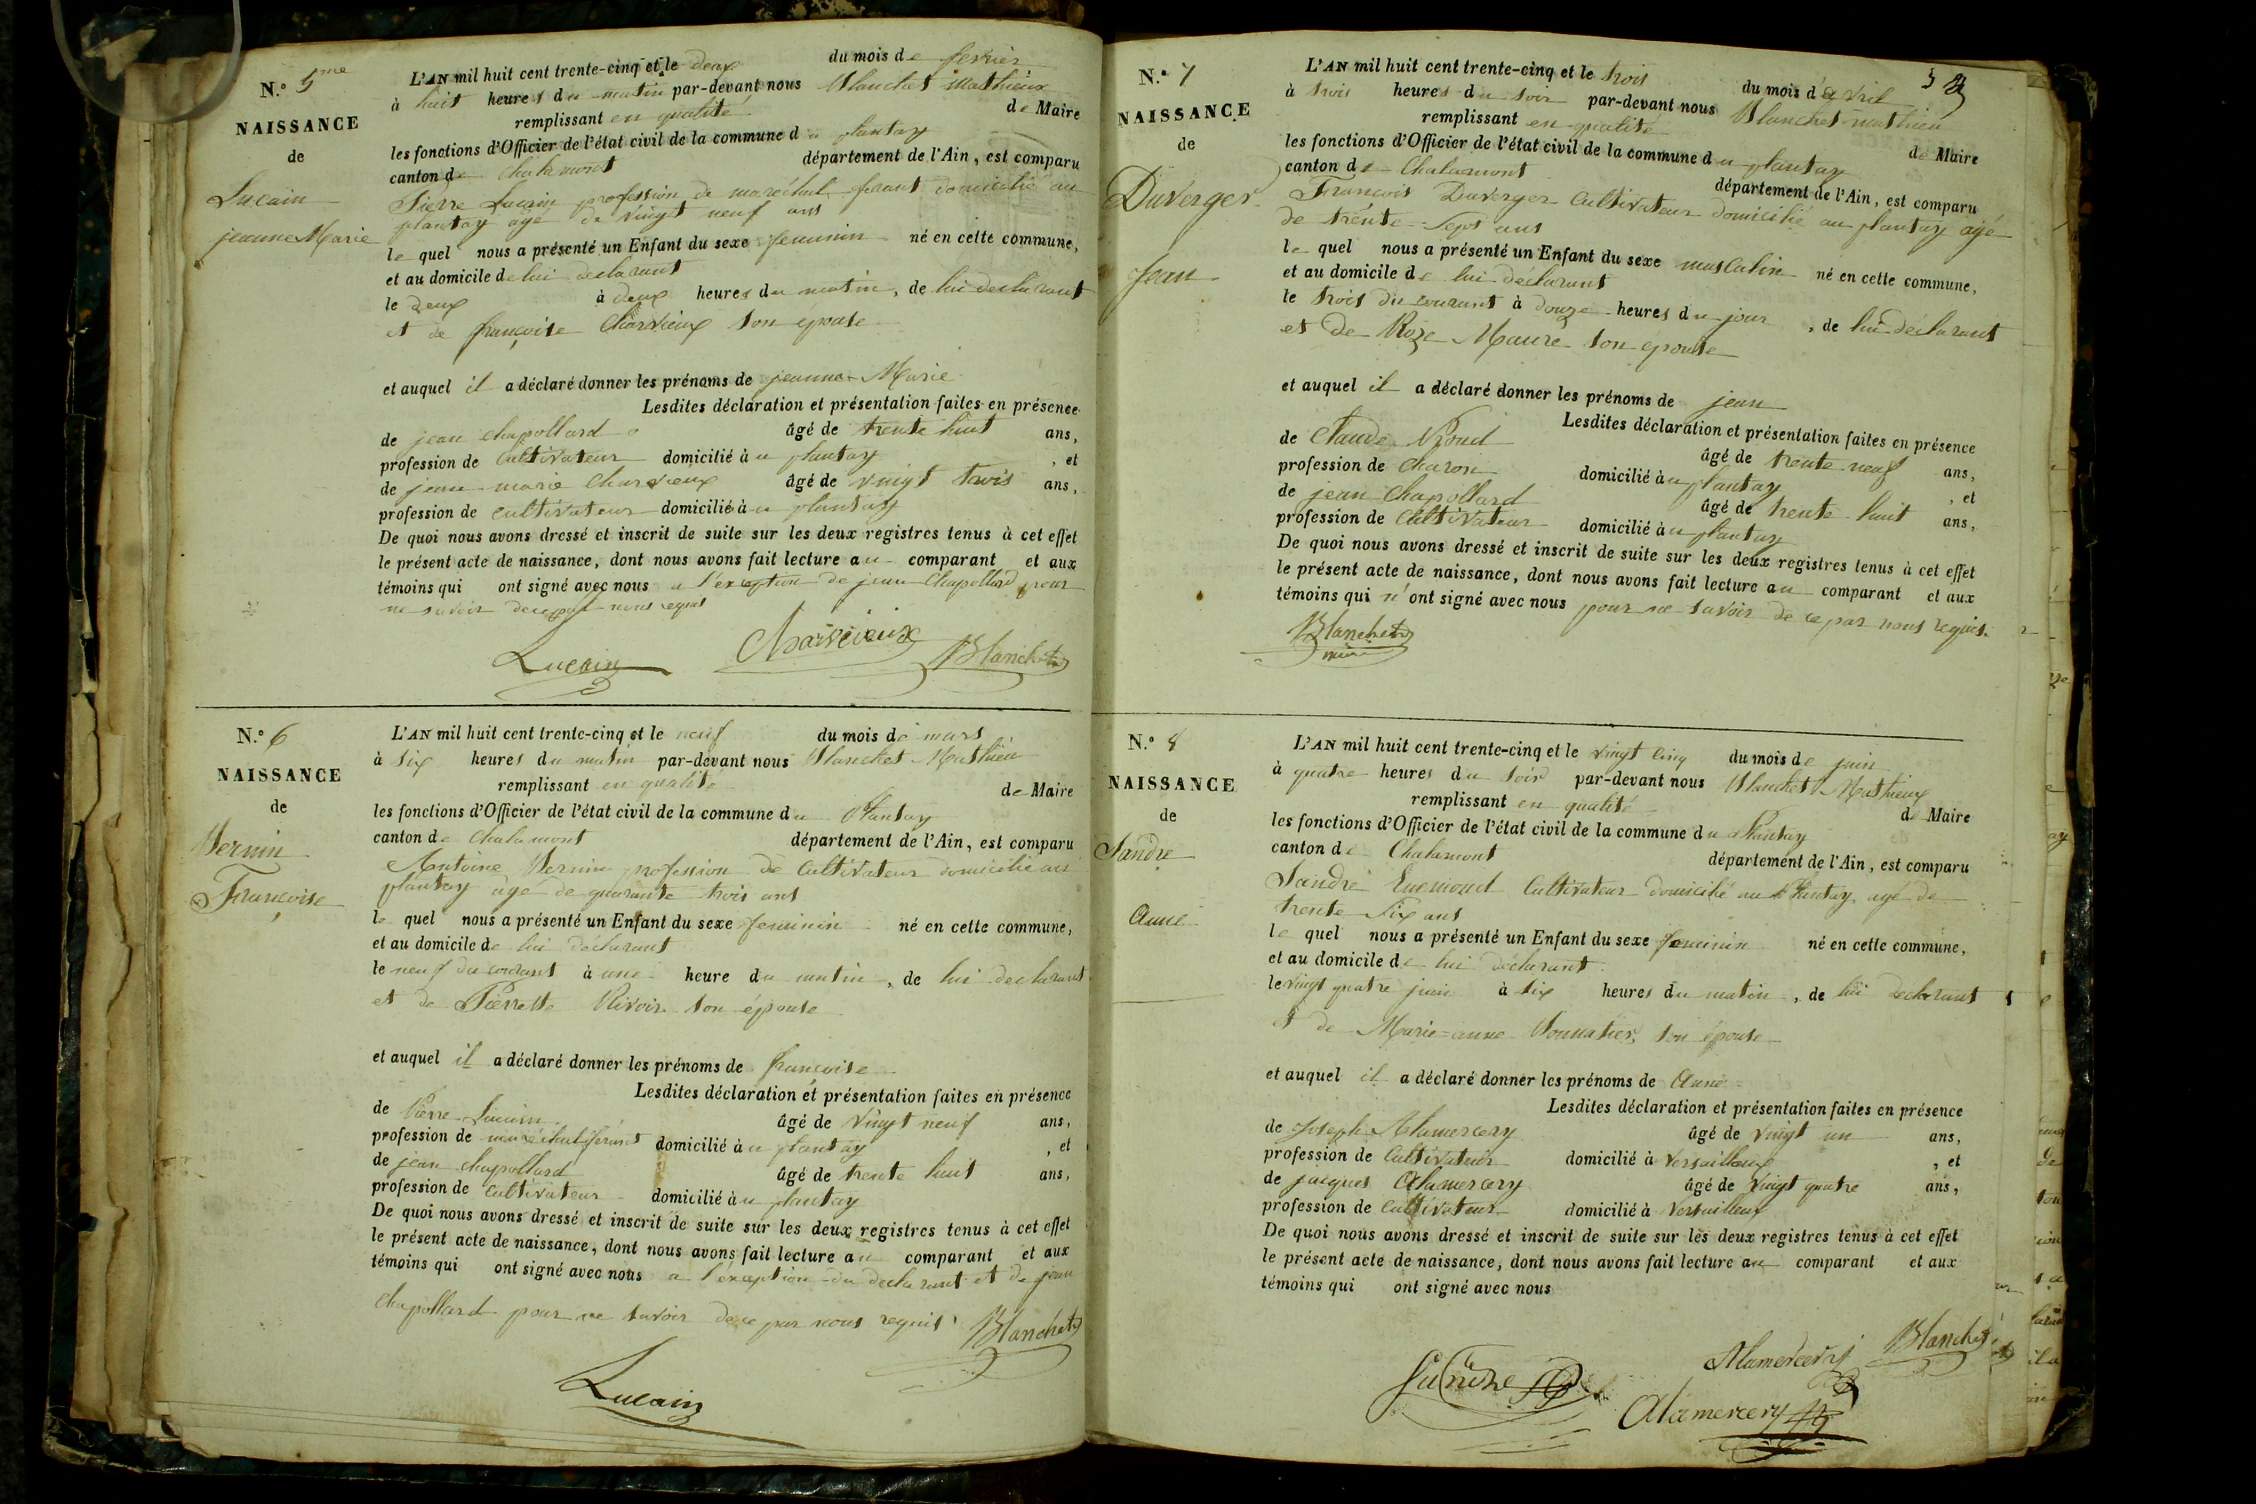 N.° 5me
NAISSANCE
de
Lucain
jeanne Marie
L'AN mil huit cent trente-cinq et le deux du mois de fevrier
à huit heures du matin par-devant nous Blanchet Mathieux
remplissant en qualité de Maire
les fonctions d'Officier de l'état civil de la commune du plantay
canton de Chalamont département de l'Ain, est comparu
Pierre Lucain profession de maréchal ferant domicilié au
plantay agé de vingt neuf ans
le quel nous a présenté un Enfant du sexe feminin né en cette commune,
et au domicile de lui declarant
le deux à deux heures du matin, de lui declarant
et de françoise Charvieux son epouse
et auquel il a déclaré donner les prénoms de jeanne Marie
Lesdites déclaration et présentation faites en présence
de jean chapollard âgé de trente huit ans,
profession de cultivateur domicilié au plantay, et
de jean marie Charvieux âgé de vingt trois ans,
profession de cultivateur domicilié au plantay
De quoi nous avons dressé et inscrit de suite sur les deux registres tenus à cet effet
le présent acte de naissance, dont nous avons fait lecture au comparant et aux
témoins qui ont signé avec nous a l'exception de jean Chapollard pour
ne savoir de ce par nous requis
Lucain Charvieux Blanchet
N.° 6
NAISSANCE
de
Vernin
Françoise
L'AN mil huit cent trente-cinq et le neuf du mois de mars
à six heures du matin par-devant nous Blanchet Mathieu
remplissant en qualité de Maire
les fonctions d'Officier de l'état civil de la commune du Plantay
canton de Chalamont département de l'Ain, est comparu
Antoine Vernin profession de Cultivateur domicilié au
plantay agé de quarante trois ans
le quel nous a présenté un Enfant du sexe feminin né en cette commune,
et au domicile de lui déclarant
le neuf du courant à une heure du matin, de lui declarant
et de Pierrette Rivoir son épouse
et auquel il a déclaré donner les prénoms de françoise
Lesdites déclaration et présentation faites en présence
de Pierre Lucain âgé de vingt neuf ans,
profession de maréchal ferant domicilié au plantay, et
de jean chapollard âgé de trente huit ans,
profession de cultivateur domicilié au plantay
De quoi nous avons dressé et inscrit de suite sur les deux registres tenus à cet effet
le présent acte de naissance, dont nous avons fait lecture au comparant et aux
témoins qui ont signé avec nous a l'exception du declarant et de jean
chapollard pour ne savoir de ce par nous requis Blanchet
Lucain
N.° 7
NAISSANCE
de
Duverger
Jean
L'AN mil huit cent trente-cinq et le trois du mois d'avril
à trois heures du soir par-devant nous Blanchet mathieu
remplissant en qualité de Maire
les fonctions d'Officier de l'état civil de la commune du plantay
canton de Chalamont département de l'Ain, est comparu
François Duverger Cultivateur domicilié au plantay agé
de trente sept ans
le quel nous a présenté un Enfant du sexe masculin né en cette commune,
et au domicile de lui déclarant
le trois du courant à douze heures du jour, de lui déclarant
et de Roze Maure son epouse
et auquel il a déclaré donner les prénoms de jean
Lesdites déclaration et présentation faites en présence
de Claude âgé de trente neuf ans,
profession de charon domicilié au plantay, et
de jean Chapollard âgé de trente huit ans,
profession de Cultivateur domicilié au plantay
De quoi nous avons dressé et inscrit de suite sur les deux registres tenus à cet effet
le présent acte de naissance, dont nous avons fait lecture au comparant et aux
témoins qui n'ont signé avec nous pour ne savoir de ce par nous requis.
Blanchet
maire
N.° 8
NAISSANCE
de
Sandre
Anne
L'AN mil huit cent trente-cinq et le vingt cinq du mois de juin
à quatre heures du soir par-devant nous Blanchet Mathieux
remplissant en qualité de Maire
les fonctions d'Officier de l'état civil de la commune du Plantay
canton de Chalamont département de l'Ain, est comparu
Sandre Cultivateur domicilié au Plantay agé de
trente six ans
le quel nous a présenté un Enfant du sexe feminin né en cette commune,
et au domicile de lui déclarant
le vingt quatre juin à six heures du matin, de lui declarant
et de Marie-anne son épouse
et auquel il a déclaré donner les prénoms de Anne
Lesdites déclaration et présentation faites en présence
de Joseph Alamercery âgé de vingt un ans,
profession de Cultivateur domicilié à Versailleux, et
de jacques Alamercery âgé de vingt quatre ans,
profession de Cultivateur domicilié à Versailleux
De quoi nous avons dressé et inscrit de suite sur les deux registres tenus à cet effet
le présent acte de naissance, dont nous avons fait lecture au comparant et aux
témoins qui ont signé avec nous
Alamercery Blanchet
Alamercery